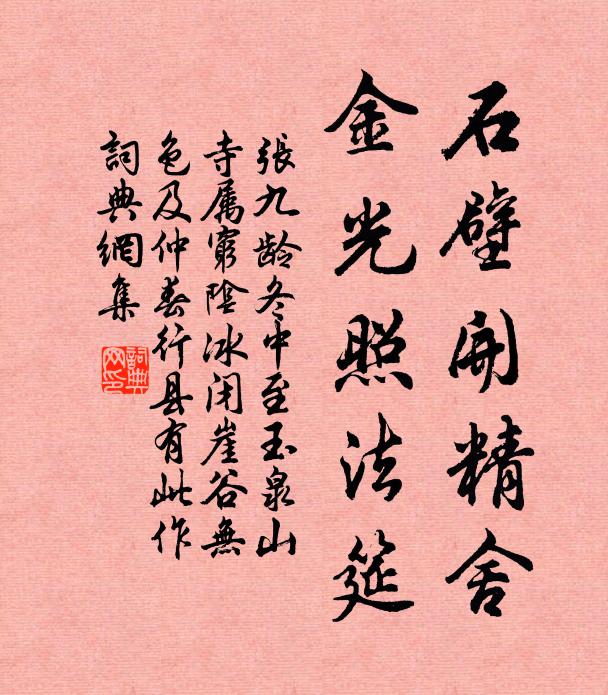 石壁開精舍
金光照法筵
張九龄冬中至玉泉山
寺属窮陰冰闭崖谷無
色及仲春行县有此作
詞典網集
詞典网印